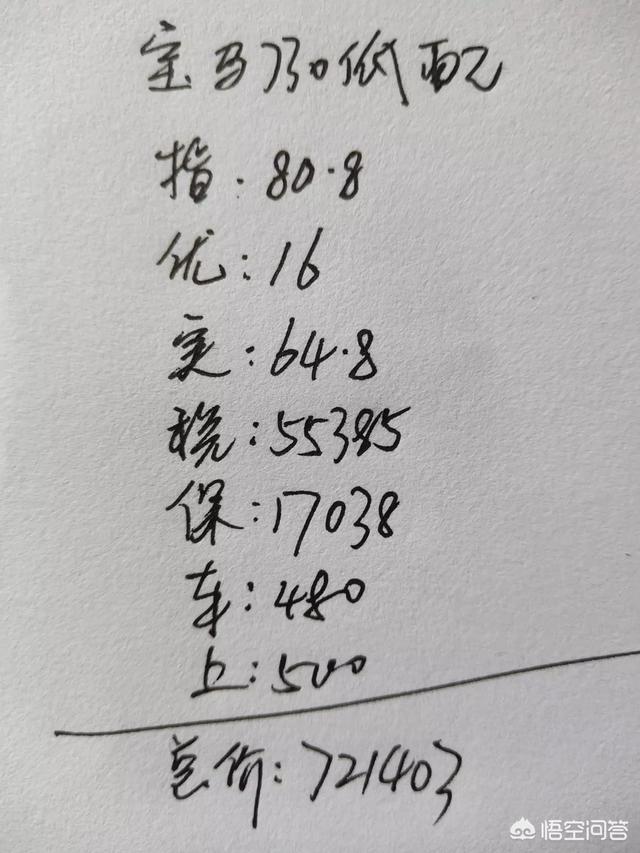 宝马730低配
指:80.8
优:16
实:64.8
税:55385
保:17038
车:480
上:500
总价:721403
悟空问答